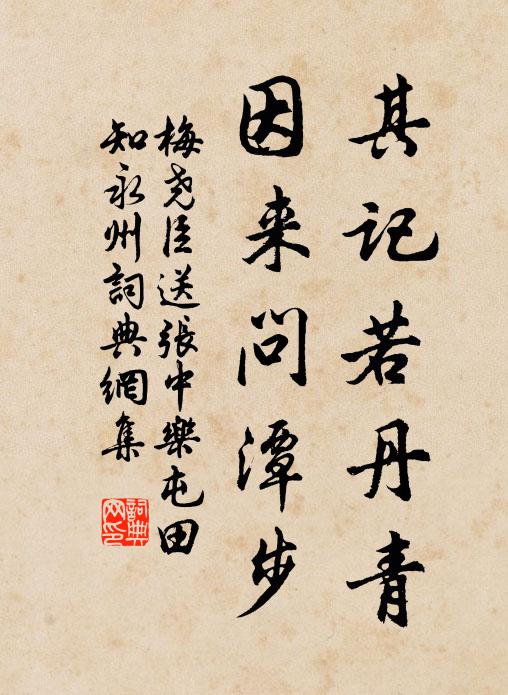 其记若丹青
因来问潭步
梅尧臣送張中樂屯田
知永州詞典網集
詞典网印